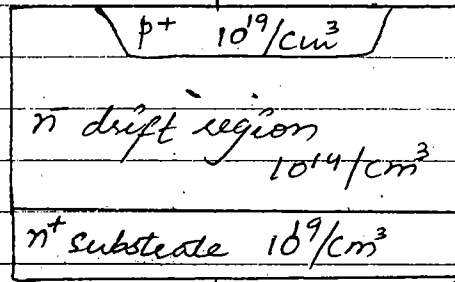 p+ 10¹⁹/cm³
n⁻ drift region
10¹⁴/cm³
n⁺ substrate 10¹⁹/cm³